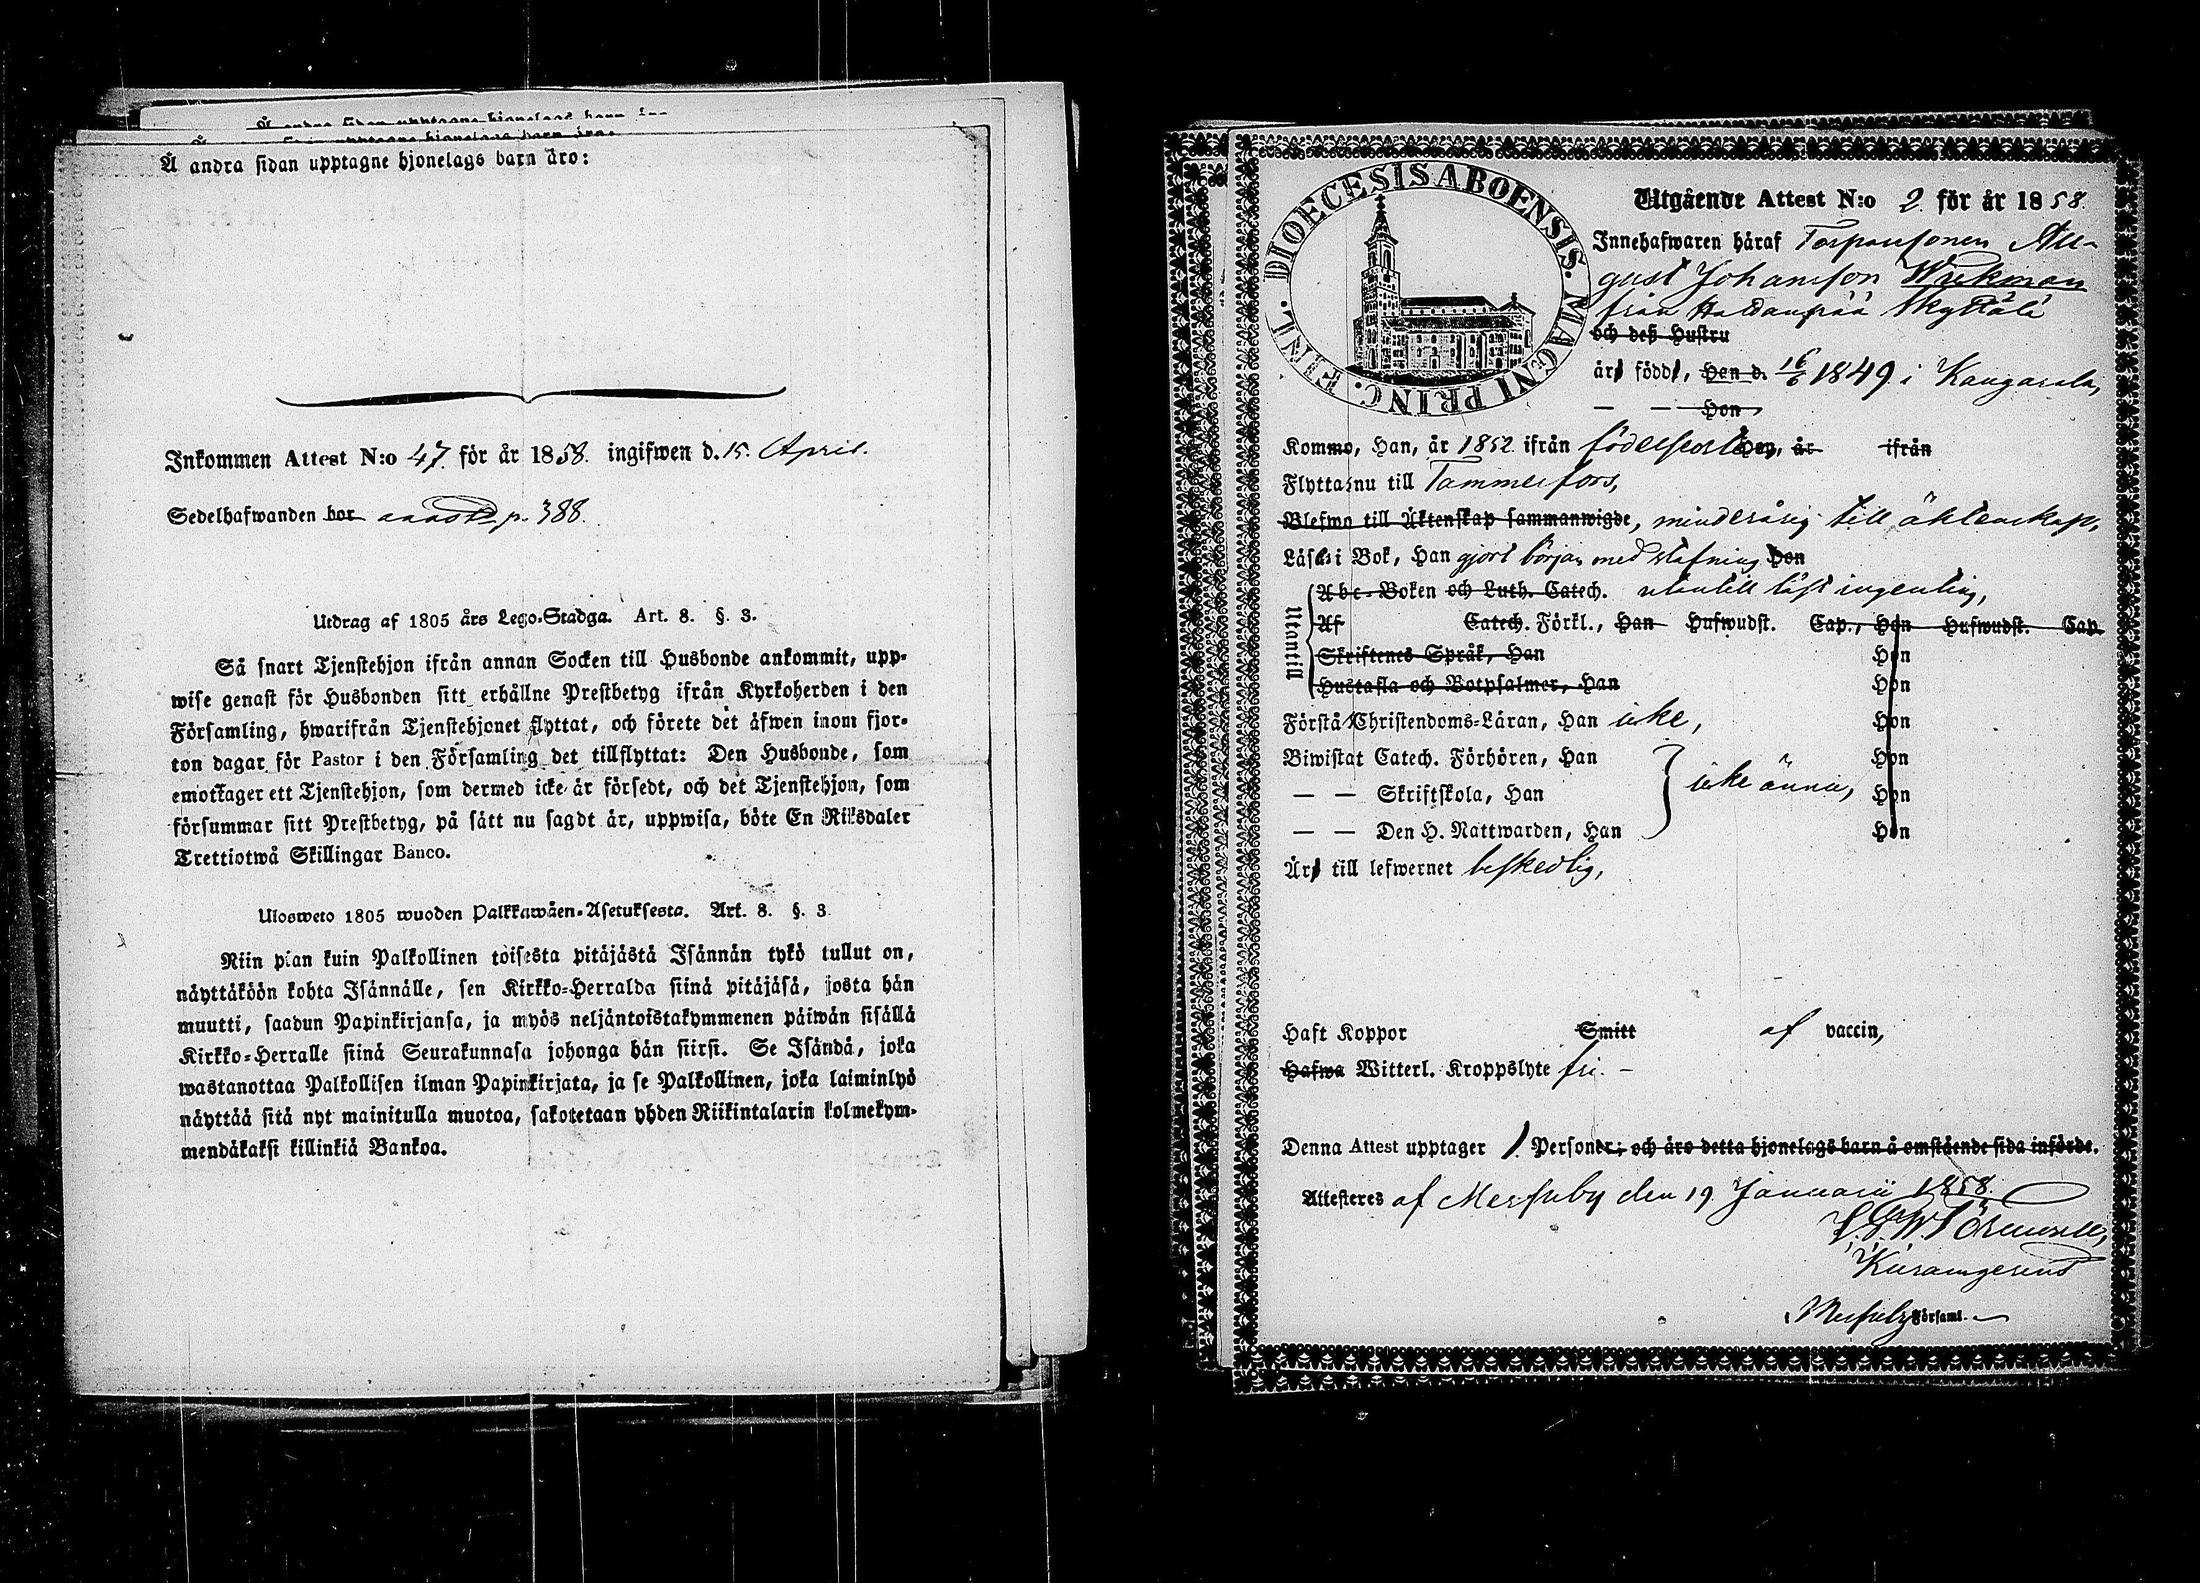 Å andra sidan upptagne hjonelags barn äro:
Inkommen Attest N:o 47. för år 1858. ingifwen d. 15. April.
Sedelhafwanden bor p. 388.
Utdrag af 1805 års Lego-Stadga. Art. 8. §. 3.
Så snart Tjenstehjon ifrån annan Socken till Husbonde ankommit, upp-
wise genast för Husbonden sitt erhållne Prestbetyg ifrån Kyrkoherden i den
Församling, hwarifrån Tjenstehjonet flyttat, och förete det äfwen inom fjor-
ton dagar för Pastor i den Församling det tillflyttat: Den Husbonde, som
emottager ett Tjenstehjon, som dermed icke är försedt, och det Tjenstehjon, som
försummar sitt Prestbetyg, på sätt nu sagdt är, uppwisa, böte En Riksdaler
Trettiotwå Skillingar Banco.
Ulosweto 1805 wuoden Palkkawäen-Asetuksesta. Art. 8. §. 3.
Niin pian kuin Palkollinen toisesta pitäjästä Isännän tykö tullut on,
näyttäköön kohta Isännälle, sen Kirkko-Herralda siinä pitäjäsä, josta hän
muutti, saadun Papinkirjansa, ja myös neljäntoistakymmenen päiwän sisällä
Kirkko-Herralle siinä Seurakunnasa johonga hän siirsi. Se Isändä, joka
wastanottaa Palkollisen ilman Papinkirjata, ja se Palkollinen, joka laiminlyö
näyttää sitä nyt mainitulla muotoa, sakotetaan yhden Riikintalarin kolmekym-
mendäkaksi killinkiä Bankoa.
DIOECESIS ABOENSIS. MAGNI PRINC. FINL.
Utgående Attest N:o 2. för år 1858.
Innehafwaren häraf Torparsonen Au-
gust Johansson Wirkman
från Haldanpää
och deß Hustru
äro födde, Han d. 16/6 1849. i Kangasala,
— — Hon
Kommo, Han, år 1852 ifrån födelseort Hon, år ifrån
Flytta nu till Tammerfors,
Blefwo till Äktenskap sammanwigde, minderårig till äktenskap,
Läsa i Bok, Han gjort början med stafning Hon
Utantill
Abc-Boken och Luth. Catech. utantill läst ingenting,
Af Catech. Förkl., Han Hufwudst. Cap., Hon Hufwudst. Cap.
Skriftenes Språk, Han Hon
Hustafla och Botpsalmer, Han Hon
Förstå Christendoms-Läran, Han icke, Hon
Biwistat Catech. Förhören, Han Hon
— — Skriftskola, Han icke ännu, Hon
— — Den H. Nattwarden, Han Hon
Äro till lefwernet beskedlig,
Haft Koppor Smitt af vaccin,
Hafwa Witterl. Kroppslyte fri. —
Denna Attest upptager 1. Personer; och äro detta hjonelags barn å omstående sida införde.
Attesteres af Messuby den 19 Januarii 1858.
Messuby Församl.